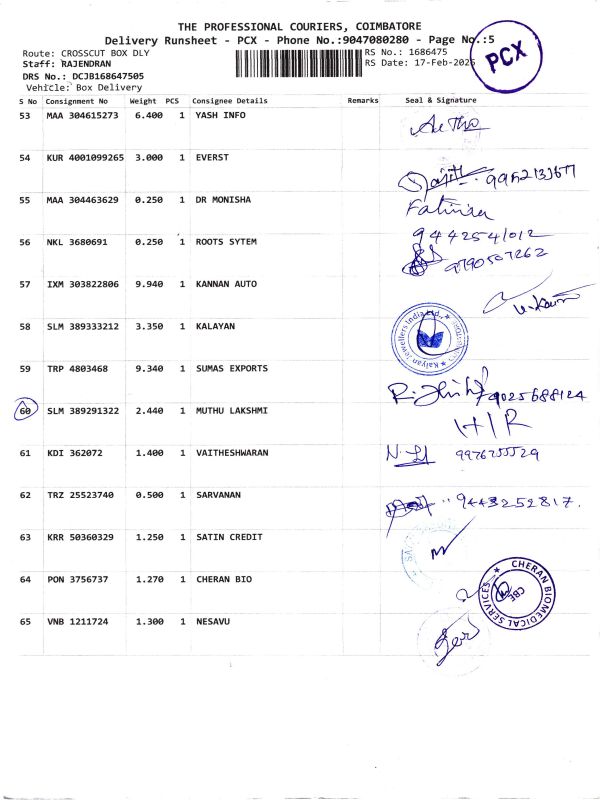 THE PROFESSIONAL COURIERS, COIMBATORE
Delivery Runsheet - PCX - Phone No.:9047080280 - Page No.:5
PCX
Route: CROSSCUT BOX DLY
RS No.: 1686475
Staff: RAJENDRAN
RS Date: 17-Feb-2026
DRS No.: DCJB168647505
Vehicle: Box Delivery
S No Consignment No Weight PCS Consignee Details Remarks Seal & Signature
53 MAA 304615273 6.400 1 YASH INFO
54 KUR 4001099265 3.000 1 EVERST
55 MAA 304463629 0.250 1 DR MONISHA Fatima
9442541012
56 NKL 3680691 0.250 1 ROOTS SYTEM 9790507262
57 IXM 303822806 9.940 1 KANNAN AUTO
58 SLM 389333212 3.350 1 KALAYAN Kalyan Jewellers India Ltd.,
59 TRP 4803468 9.340 1 SUMAS EXPORTS 9025688124
60 SLM 389291322 2.440 1 MUTHU LAKSHMI H/R
61 KDI 362072 1.400 1 VAITHESHWARAN
62 TRZ 25523740 0.500 1 SARVANAN 9443252817.
63 KRR 50360329 1.250 1 SATIN CREDIT
64 PON 3756737 1.270 1 CHERAN BIO CHERAN BIOMEDICAL SERVICES CBE
65 VNB 1211724 1.300 1 NESAVU